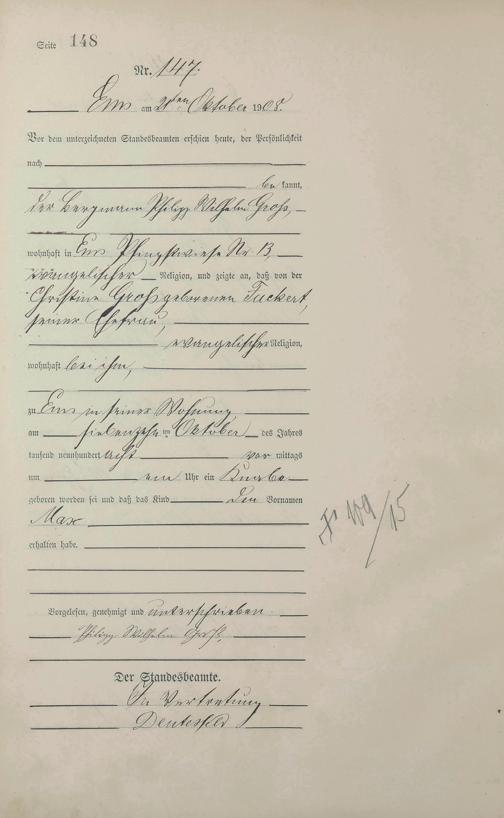 Seite 148
Nr. 147.
Ems am 21ten Oktober 1908.
Vor dem unterzeichneten Standesbeamten erschien heute, der Persönlichkeit
nach
be kannt,
der Bergmann Philipp Wilhelm Groß,
wohnhaft in Ems Pfingstwiese Nr 13,
evangelischer Religion, und zeigte an, daß von der
Christine Groß geborenen Fuckert,
seiner Ehefrau,
evangelischer Religion,
wohnhaft bei ihm,
zu Ems in seiner Wohnung
am siebenzehn ten Oktober des Jahres
tausend neunhundert acht vor mittags
um ein Uhr ein Knabe
geboren worden sei und daß das Kind den Vornamen
Max
erhalten habe.
Vorgelesen, genehmigt und unterschrieben
Philipp Wilhelm Groß.
Der Standesbeamte.
In Vertretung
109/15